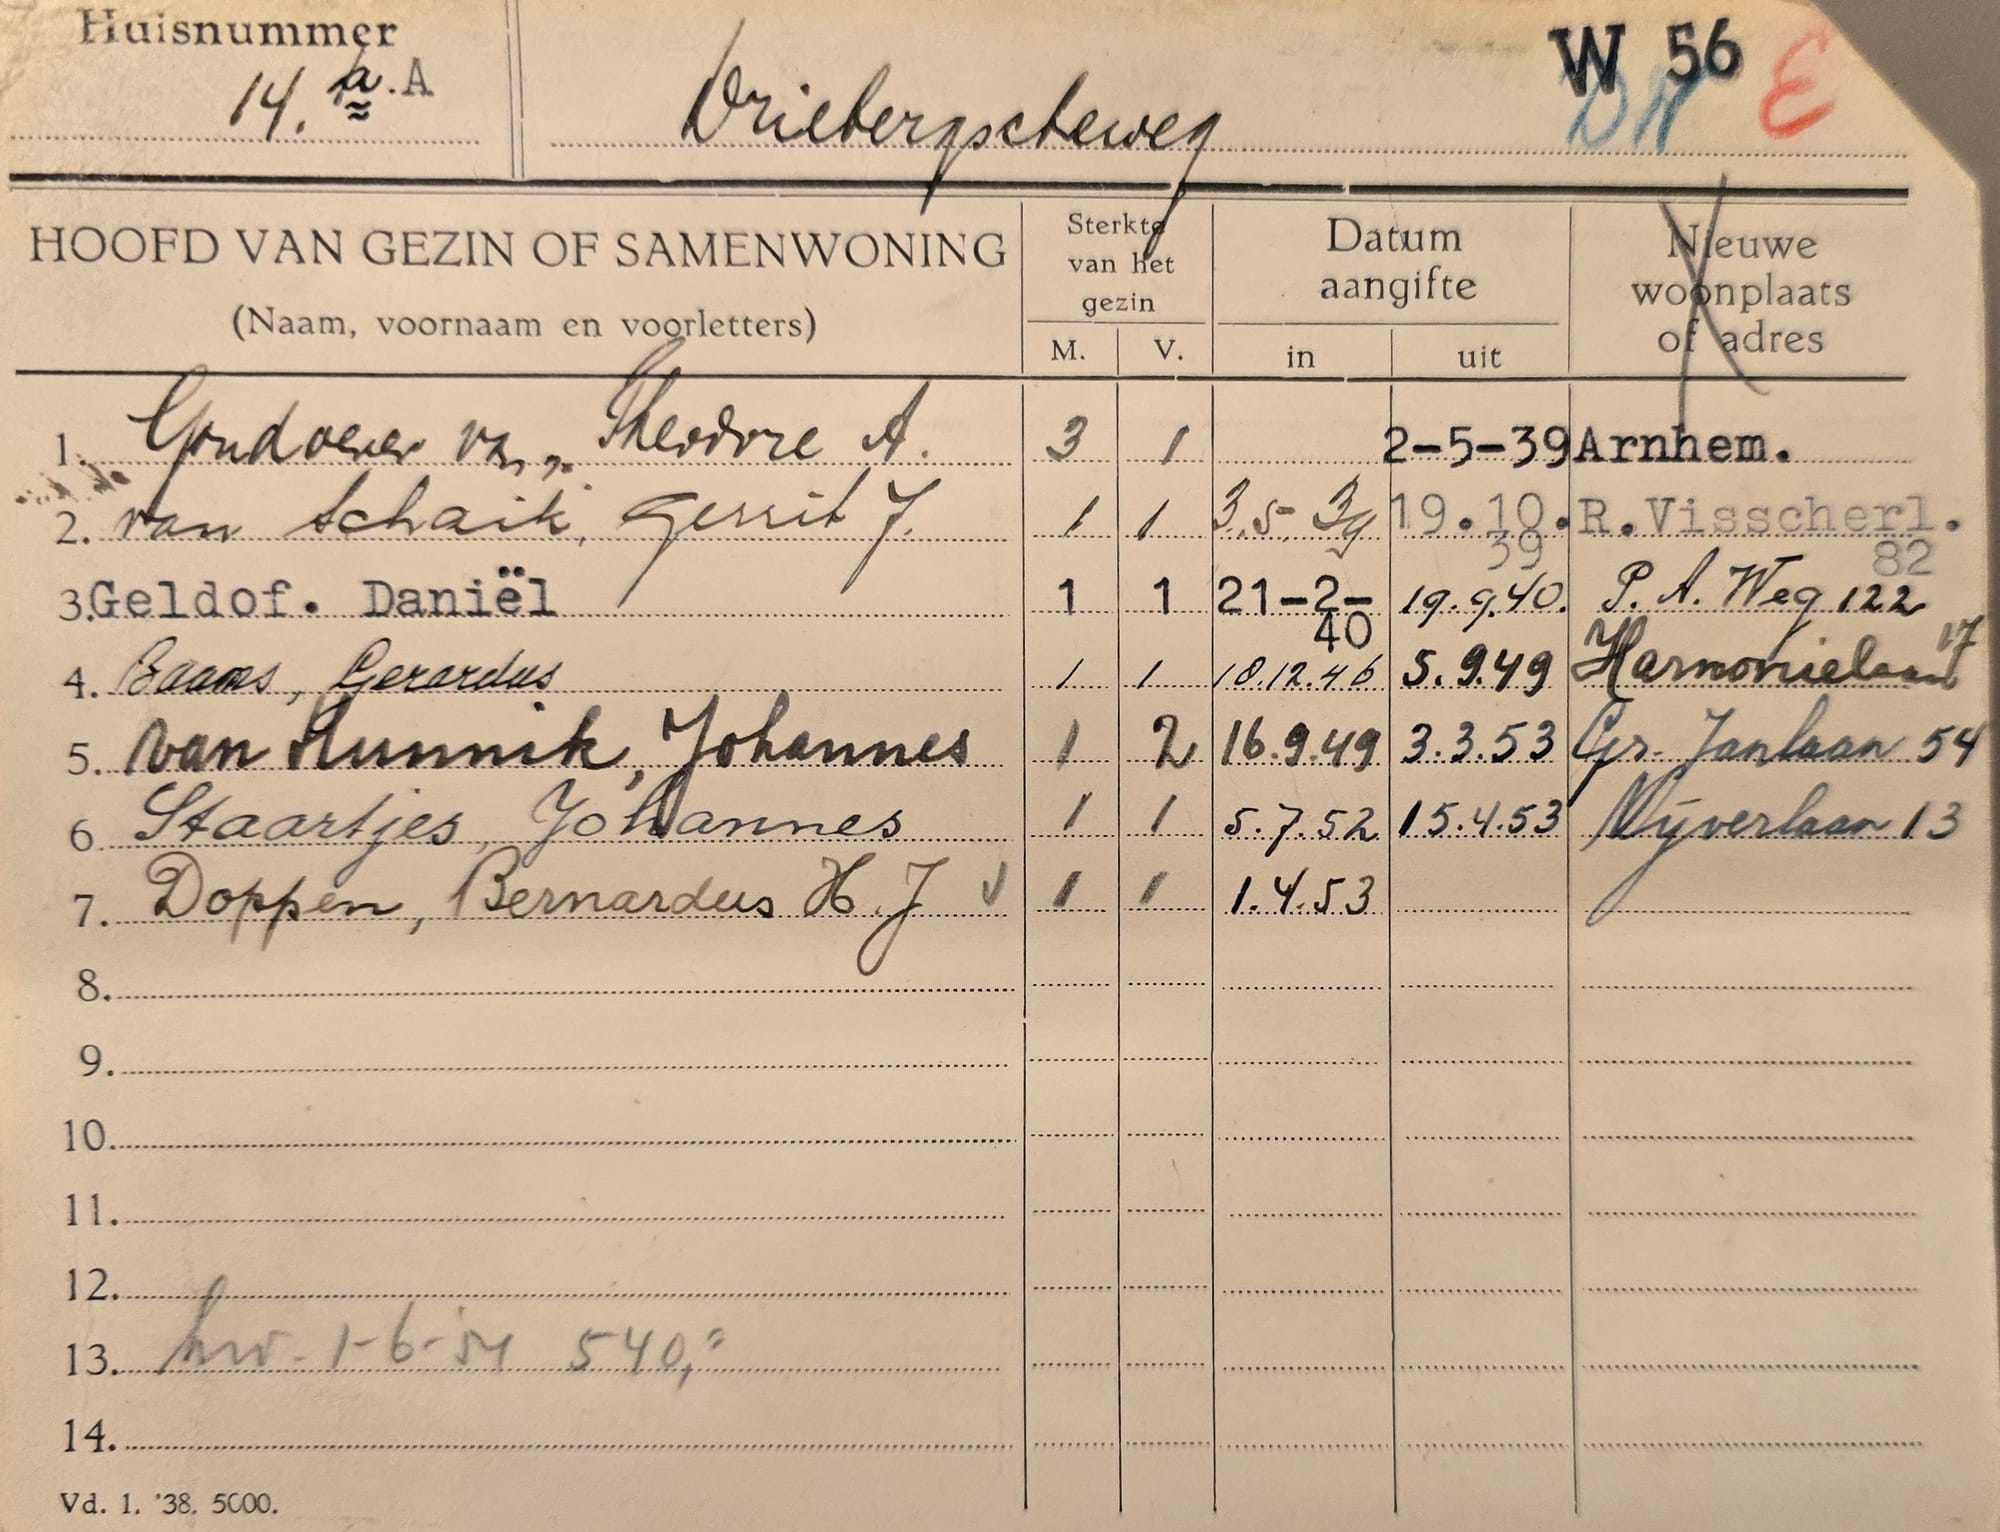 Huisnummer
14. a. A
Driebergscheweg
W 56
DN E
HOOFD VAN GEZIN OF SAMENWONING
(Naam, voornaam en voorletters)
Sterkte van het gezin
M. V.
Datum aangifte
in uit
Nieuwe woonplaats of adres
1. Goudoever van, Theodore A. 3 1 2-5-39 Arnhem.
2. van Schaik, Gerrit J. 1 1 3.5.39 19.10.39 R.Visscherl. 82
3. Geldof. Daniël 1 1 21-2-40 19.9.40. P. A. Weg 122
4. Baars, Gerardus 1 1 18.12.46 5.9.49 Harmonielaan 17
5. van Hunnik, Johannes 1 2 16.9.49 3.3.53 Gr. Janlaan 54
6. Staartjes, Johannes 1 1 5.7.52 15.4.53 Nijverlaan 13
7. Doppen, Bernardus H. J 1 1 1.4.53
8.
9.
10.
11.
12.
13. hw. 1-6-54 540,=
14.
Vd. 1. '38. 5000.